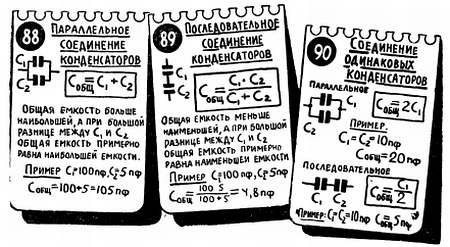 88
ПАРАЛЛЕЛЬНОЕ
СОЕДИНЕНИЕ
КОНДЕНСАТОРОВ
C₁
C₂
Cобщ = C₁ + C₂
ОБЩАЯ ЕМКОСТЬ БОЛЬШЕ
НАИБОЛЬШЕЙ, А ПРИ БОЛЬШОЙ
РАЗНИЦЕ МЕЖДУ C₁ И C₂
ОБЩАЯ ЕМКОСТЬ ПРИМЕРНО
РАВНА НАИБОЛЬШЕЙ ЕМКОСТИ.
ПРИМЕР C₁=100пф, C₂=5пф
Cобщ=100+5=105пф
89
ПОСЛЕДОВАТЕЛЬНОЕ
СОЕДИНЕНИЕ
КОНДЕНСАТОРОВ
C₁
C₂
Cобщ = C₁ · C₂ / C₁ + C₂
ОБЩАЯ ЕМКОСТЬ МЕНЬШЕ
НАИМЕНЬШЕЙ, А ПРИ БОЛЬШОЙ
РАЗНИЦЕ МЕЖДУ C₁ И C₂
ОБЩАЯ ЕМКОСТЬ ПРИМЕРНО
РАВНА НАИМЕНЬШЕЙ ЕМКОСТИ
ПРИМЕР C₁=100пф, C₂=5пф
Cобщ = 100·5 / 100+5 = 4,8пф
90
СОЕДИНЕНИЕ
ОДИНАКОВЫХ
КОНДЕНСАТОРОВ
ПАРАЛЛЕЛЬНОЕ
C₁
C₂
Cобщ = 2C₁
ПРИМЕР:
C₁=C₂=10пф
Cобщ=20пф
ПОСЛЕДОВАТЕЛЬНОЕ
C₁ C₂
Cобщ = C₁ / 2
ПРИМЕР: C₁=C₂=10пф C=5пф